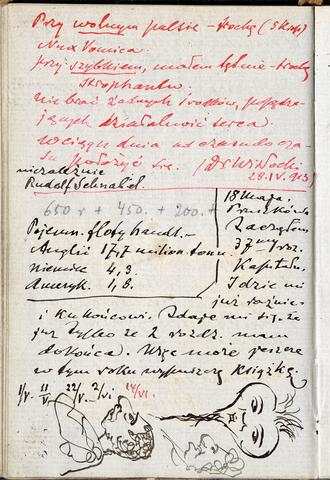 Przy wolnym pulsie – trochę (5 kropl)
Nux Vomica.
Przy szybkiem, małem tętnie – trochę
Strophantu.
Nie brać żadnych środków, pobudza-
jących działalność serca.
W ciągu dnia od czasu do cza-
su położyć się. (Dr
28.IV.913)
niezależnie
Rudolf Schnabel.
650 r + 450. + 200. +
Pojemn. floty handl. –
Anglii 17,7 milion. tonn.
Niemiec 4,3.
Ameryk. 1,8.
18 maja.
Pruszków
Zacząłem
37my roz.
Kapitału.
Idzie mi
już
i ku końcowi. Zdaje mi się, że
już tylko ze 2 rozdz. mam
do końca. Więc może jeszcze
w tym roku wypuszczę książkę.
1/V. 11/V. 22/V. 2/VI. 14/VI.